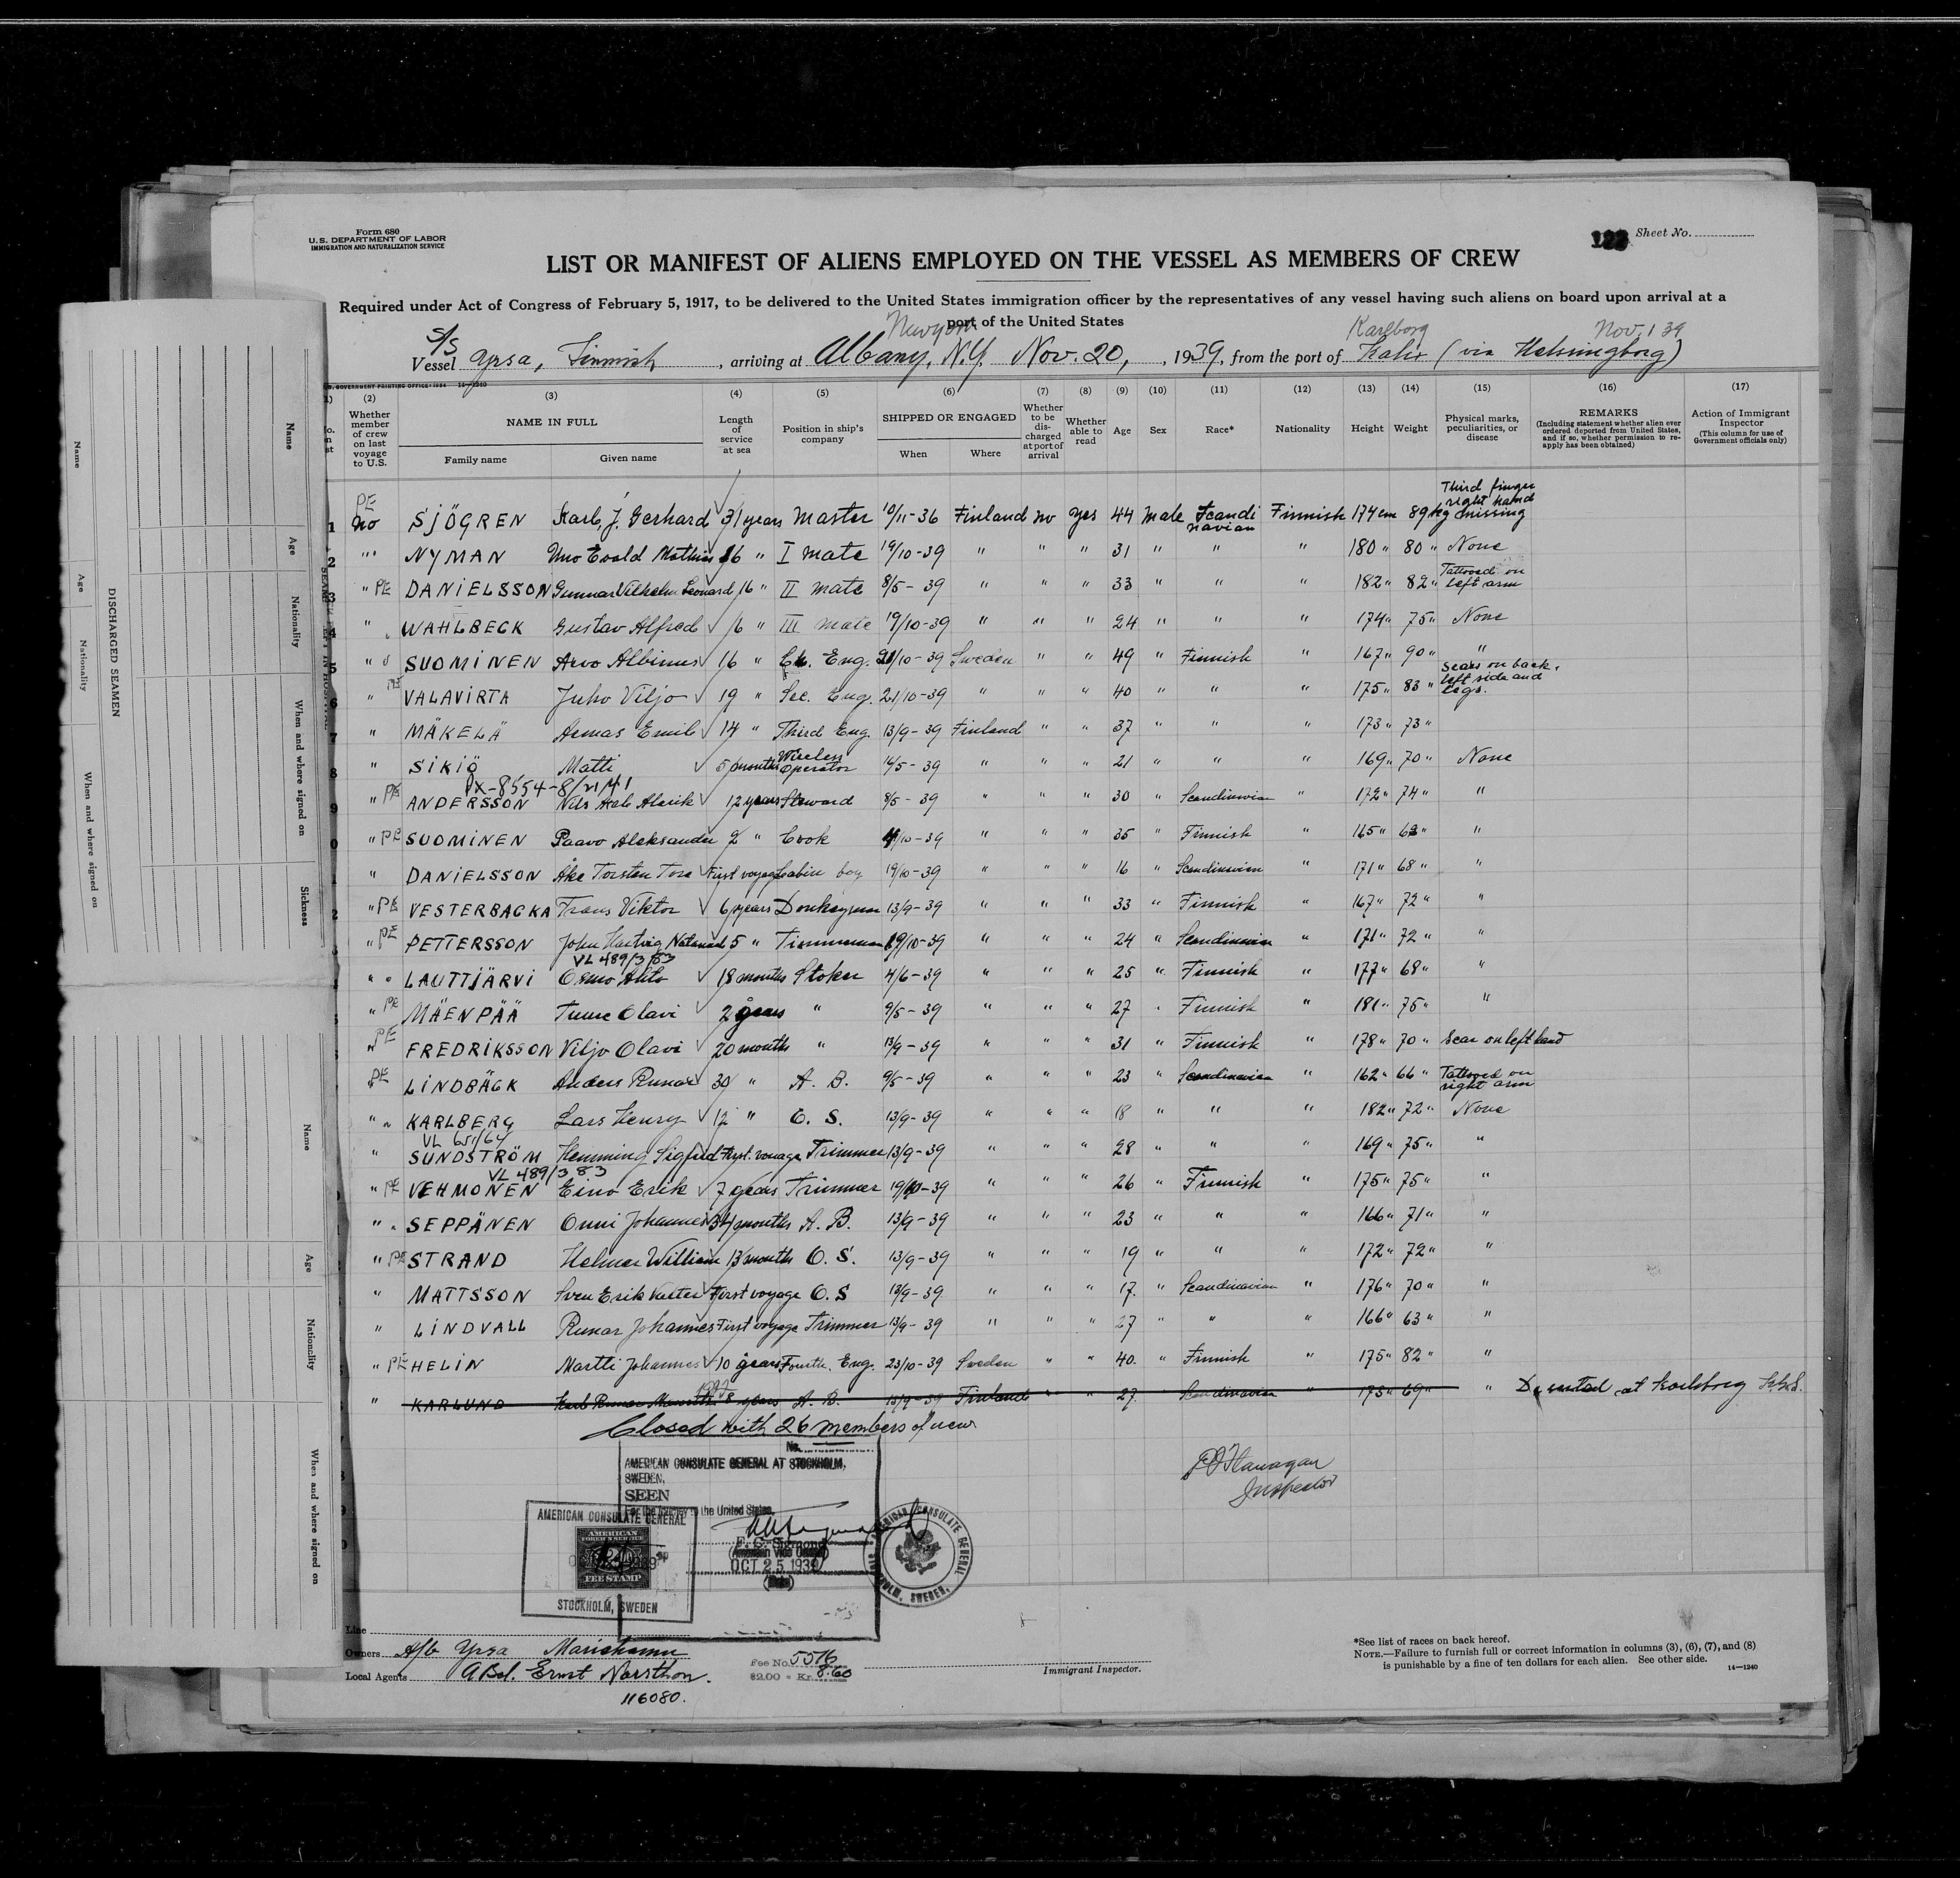 Form 680
U.S. DEPARTMENT OF LABOR
IMMIGRATION AND NATURALIZATION SERVICE
122 Sheet No.
LIST OR MANIFEST OF ALIENS EMPLOYED ON THE VESSEL AS MEMBERS OF CREW
Required under Act of Congress of February 5, 1917, to be delivered to the United States immigration officer by the representatives of any vessel having such aliens on board upon arrival at a
port of the United States
Karlborg Nov. 1 39
S/S
Vessel Yrsa, Finnish, arriving at Albany, N.Y. Nov. 20, 1939, from the port of Kalix (via Helsingborg)
U.S. GOVERNMENT PRINTING OFFICE: 1934 14—1240
(2) (3) (4) (5) (6) (7) (8) (9) (10) (11) (12) (13) (14) (15) (16) (17)
Whether member of crew on last voyage to U.S.
NAME IN FULL
Family name Given name
Length of service at sea
Position in ship's company
SHIPPED OR ENGAGED
When Where
Whether to be discharged at port of arrival
Whether able to read
Age
Sex
Race*
Nationality
Height
Weight
Physical marks, peculiarities, or disease
REMARKS
(Including statement whether alien ever ordered deported from United States, and if so, whether permission to reapply has been obtained)
Action of Immigrant Inspector
(This column for use of Government officials only)
1 PE No SJÖGREN Karl J. Gerhard 31 years Master 10/11-36 Finland no yes 44 Male Scandinavian Finnish 174 cm 89 kg Third finger right hand missing
2 " NYMAN Uno Evald Mathias 16 " I mate 19/10-39 " " " 31 " " " 180 " 80 " None
3 " PE DANIELSSON Gunnar Vilhelm Leonard 16 " II mate 8/5-39 " " " 33 " " " 182 " 82 " Tattooed on left arm
4 " WAHLBECK Gustav Alfred 6 " III mate 19/10-39 " " " 24 " " " 174 " 75 " None
5 " SUOMINEN Arvo Albinus 16 " Ch. Eng. 21/10-39 Sweden " " 49 " Finnish " 167 " 90 " "
6 " PE VALAVIRTA Juho Viljo 19 " Sec. Eng. 21/10-39 " " " 40 " " " 175 " 83 " Scars on back, left side and legs.
7 " MÄKELÄ Armas Emil 14 " Third Eng. 13/9-39 Finland " " 37 " " 173 " 73 "
8 " SIKIÖ Matti 5 months Wireless Operator 14/5-39 " " " 21 " " " 169 " 70 " None
9 " PE ANDERSSON Nils Alarik 12 years Steward 8/5-39 " " " 30 " Scandinavian " 172 " 74 " "
0 " PE SUOMINEN Paavo Aleksander 2 " Cook /10-39 " " " 35 " Finnish " 165 " 63 " "
1 " DANIELSSON Åke Torsten Tore First voyage Cabin boy 19/10-39 " " " 16 " Scandinavian " 171 " 68 " "
2 " PE VESTERBACKA Frans Viktor 6 years Donkeyman 13/9-39 " " " 33 " Finnish " 167 " 72 " "
" PE PETTERSSON John Hartvig Natanael 5 " Timmerman 19/10-39 " " " 24 " Scandinavian " 171 " 72 " "
VL 489/3 83
" LAUTTJÄRVI Osmo Ahto 18 months Stoker 4/6-39 " " " 25 " Finnish " 177 " 68 " "
" PE MÄENPÄÄ Tuure Olavi 2 years " 9/5-39 " " " 27 " Finnish " 181 " 75 " "
PE " FREDRIKSSON Viljo Olavi 20 months " 13/9-39 " " " 31 " Finnish " 178 " 70 " Scar on left hand
PE " LINDBÄCK Anders Runar 30 " A. B. 9/5-39 " " " 23 " Scandinavian " 162 " 66 " Tattooed on right arm
" KARLBERG Lars Henry 12 " O. S. 13/9-39 " " " 18 " " " 182 " 72 " None
" SUNDSTRÖM Hemming Sigfrid First voyage Trimmer 13/9-39 " " " 28 " " " 169 " 75 " "
VL 489/3 83
" PE VEHMONEN Eino Erik 7 years Trimmer 19/10-39 " " " 26 " Finnish " 175 " 75 " "
" SEPPÄNEN Onni Johannes 34 months A. B. 13/9-39 " " " 23 " " " 166 " 71 " "
" PE STRAND Helmer William 13 months O. S. 13/9-39 " " " 19 " " " 172 " 72 " "
" MATTSSON Sven Erik First voyage O. S 13/9-39 " " " 17. " Scandinavian " 176 " 70 " "
" LINDVALL Runar Johannes First voyage Trimmer 13/9-39 " " " 27 " " " 166 " 63 " "
" PE HELIN Martti Johannes 10 years Fourth. Eng. 23/10-39 Sweden " " 40. " Finnish " 175 " 82 " "
" KARLUND Karl Runar 8 years A. B. 13/9-39 Finland " " 27 Scandinavian " 175 " 69 " " Deserted at Karlsborg
Closed with 26 members of crew
P O'Flanagan
Inspector
No.
AMERICAN CONSULATE GENERAL AT STOCKHOLM,
SWEDEN.
SEEN
For the journey to the United States
(American Vice Consul)
OCT 25 1939
(Date)
AMERICAN CONSULATE GENERAL
AMERICAN
FOREIGN SERVICE
FEE STAMP
STOCKHOLM, SWEDEN
AMERICAN CONSULATE GENERAL STOCKHOLM, SWEDEN.
Line
Owners A/b Yrsa Mariehamn
Local Agents
116080.
Fee No. 5576
$2.00 = Kr. 8.60
Immigrant Inspector.
*See list of races on back hereof.
NOTE.—Failure to furnish full or correct information in columns (3), (6), (7), and (8)
is punishable by a fine of ten dollars for each alien. See other side.
14—1240
DISCHARGED SEAMEN
Name
Age
Nationality
When and where signed on
Name
Age
Nationality
When and where signed on
Sickness
Name
Age
Nationality
When and where signed on